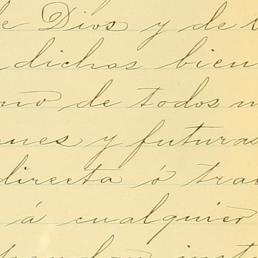 de Dios y de
dichos bien
de todos
y futuras
directa ó
á cualquier